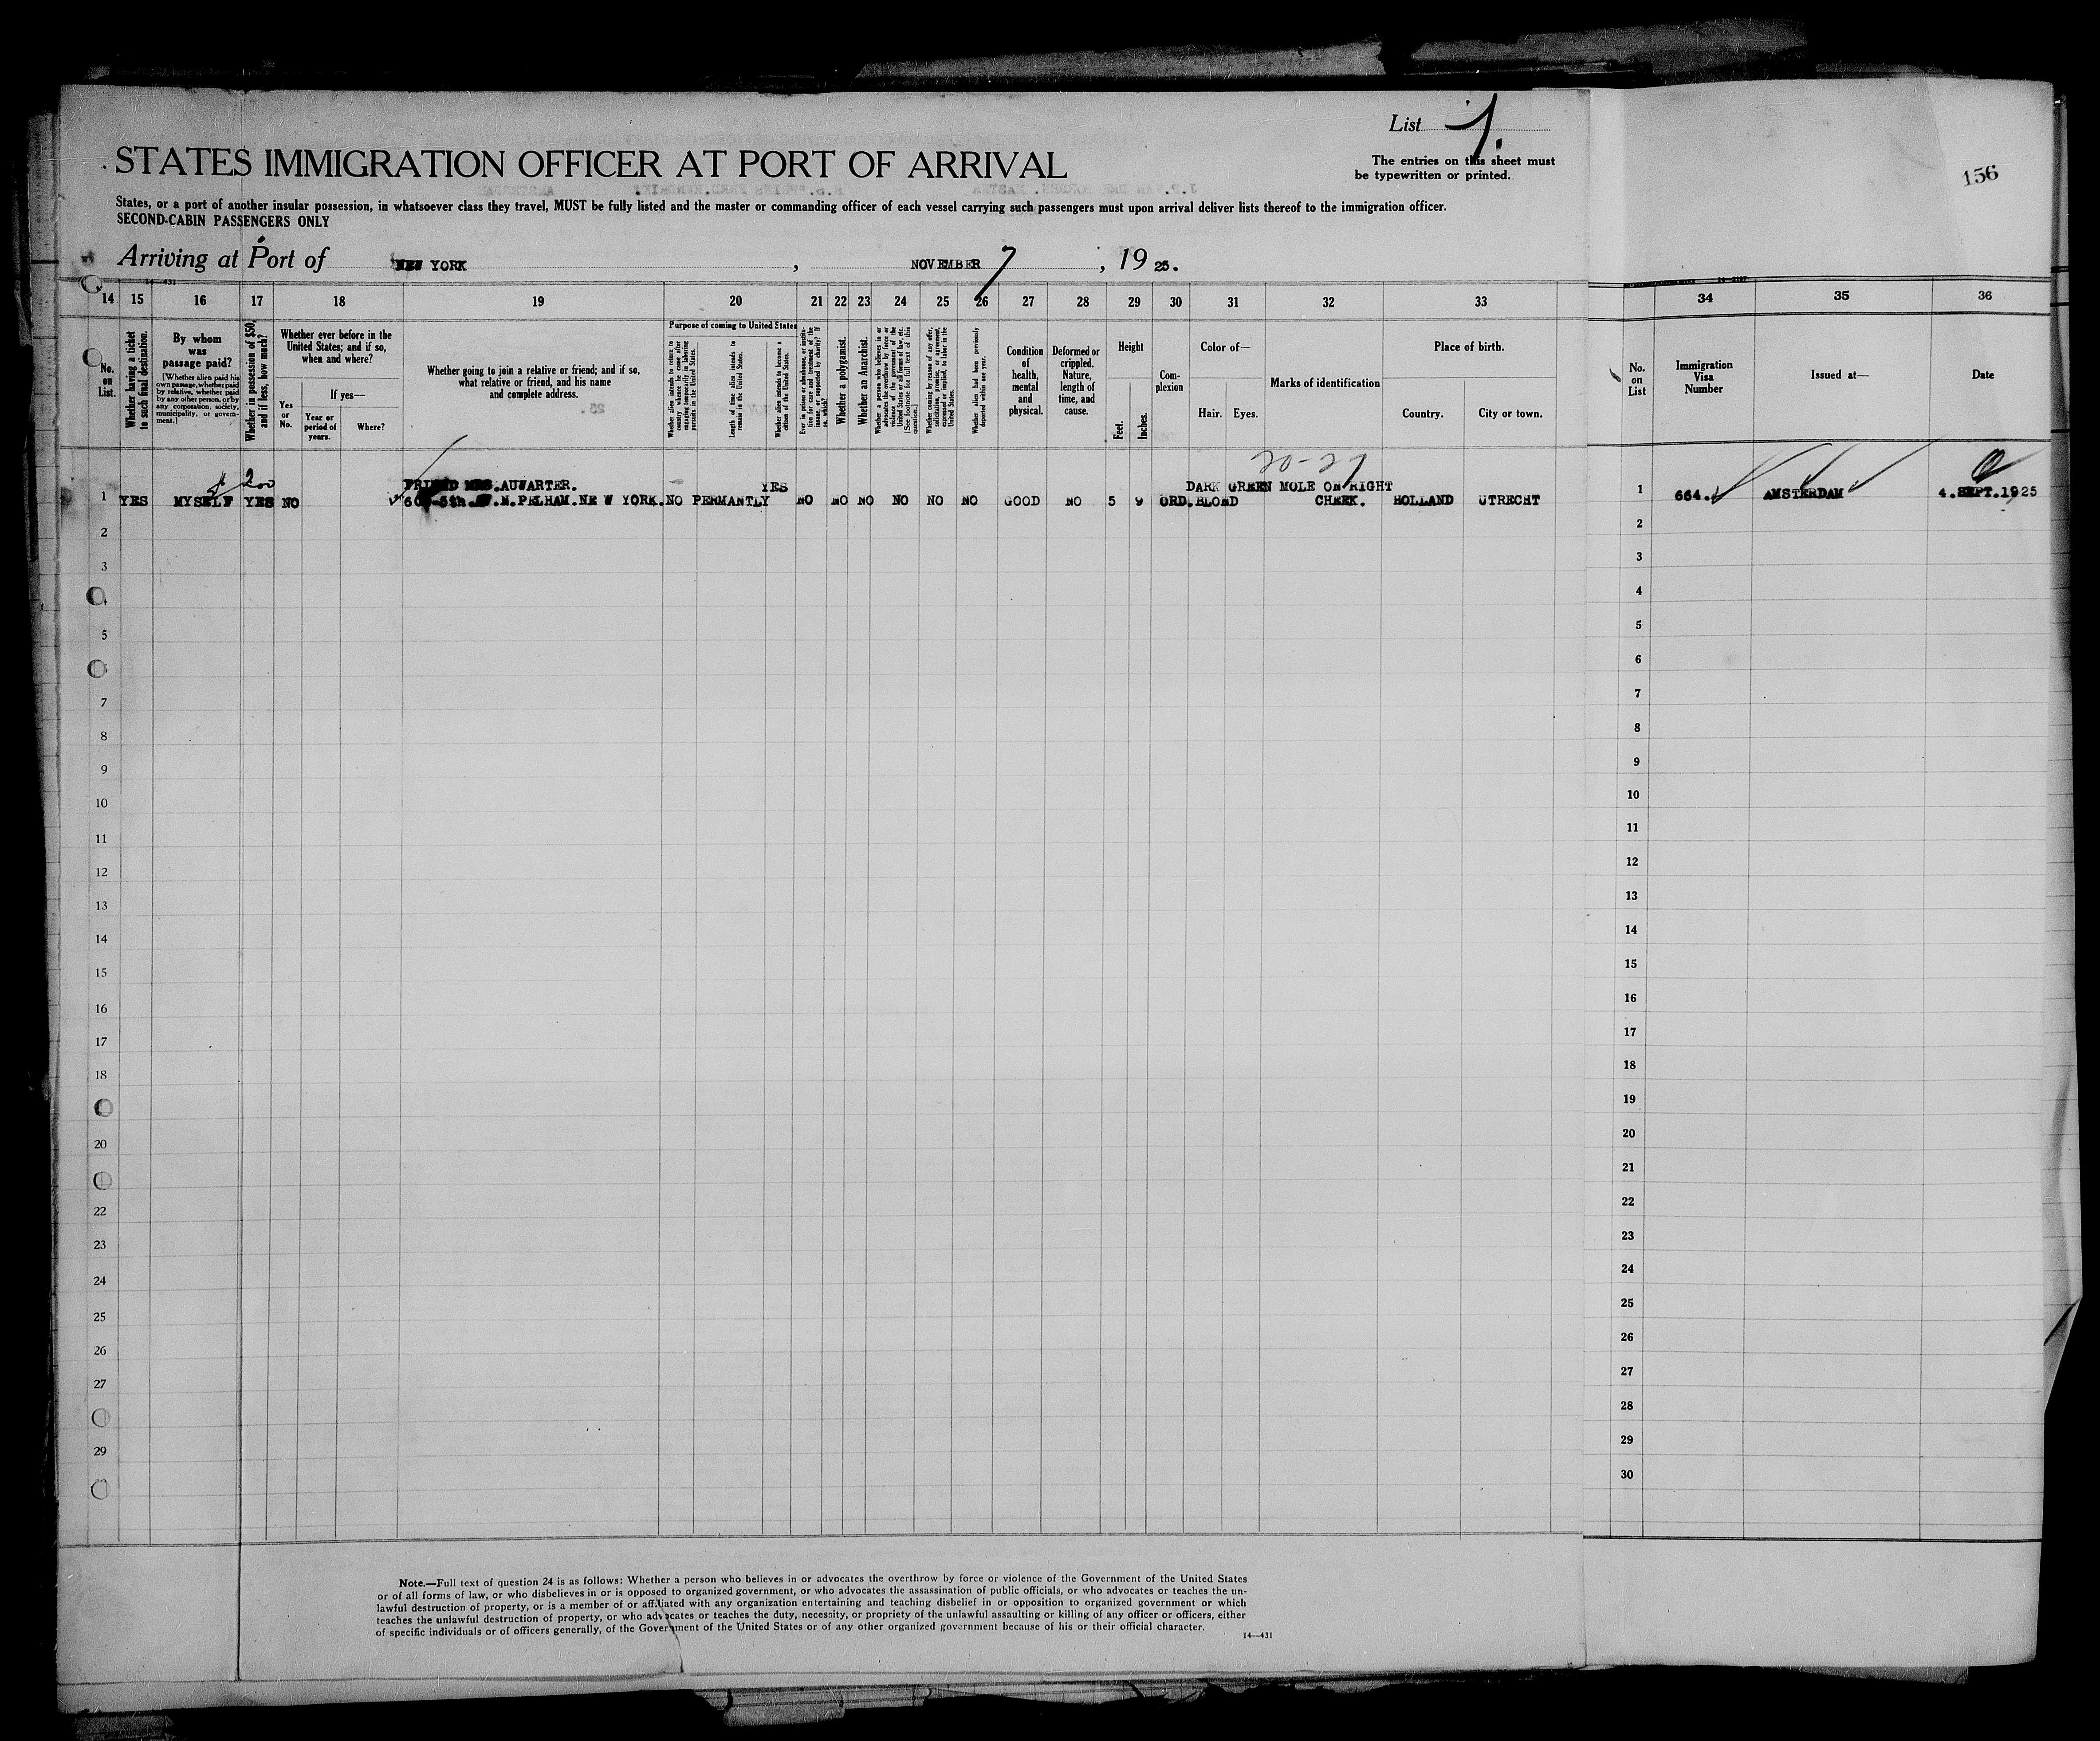 List 1.
The entries on this sheet must
be typewritten or printed.
156
STATES IMMIGRATION OFFICER AT PORT OF ARRIVAL
States, or a port of another insular possession, in whatsoever class they travel, MUST be fully listed and the master or commanding officer of each vessel carrying such passengers must upon arrival deliver lists thereof to the immigration officer.
SECOND-CABIN PASSENGERS ONLY
Arriving at Port of NEW YORK , NOVEMBER 7 , 19 25.
14—431
14 15 16 17 18 19 20 21 22 23 24 25 26 27 28 29 30 31 32 33 34 35 36
No.
on
List.
Whether having a ticket
to such final destination.
By whom
was
passage paid?
[Whether alien paid his
own passage, whether paid
by relative, whether paid
by any other person, or by
any corporation, society,
municipality, or govern-
ment.]
Whether in possession of $50,
and if less, how much?
Whether ever before in the
United States; and if so,
when and where?
Yes
or
No.
If yes—
Year or
period of
years.
Where?
Whether going to join a relative or friend; and if so,
what relative or friend, and his name
and complete address.
Purpose of coming to United States
Whether alien intends to return to
country whence he came after
engaging temporarily in laboring
pursuits in the United States.
Length of time alien intends to
remain in the United States.
Whether alien intends to become a
citizen of the United States.
Ever in prison or almshouse, or institu-
tion for care and treatment of the
insane, or supported by charity? If
so, which?
Whether a polygamist.
Whether an Anarchist.
Whether a person who believes in or
advocates the overthrow by force or
violence of the government of the
United States or all forms of law, etc.
[See footnote for full text of this
question.]
Whether coming by reason of any offer,
solicitation, promise, or agreement,
expressed or implied, to labor in the
United States.
Whether alien had been previously
deported within one year.
Condition
of
health,
mental
and
physical.
Deformed or
crippled.
Nature,
length of
time, and
cause.
Height
Feet.
Inches.
Com-
plexion
Color of—
Hair. Eyes.
Marks of identification
Place of birth.
Country. City or town.
No.
on
List
Immigration
Visa
Number
Issued at—
Date
$200
FRIEND MRS.AUWARTER. YES DARK GREEN MOLE ON RIGHT
1 YES MYSELF YES NO 5th N.PELHAM.NEW YORK. NO PERMANTLY NO NO NO NO NO NO GOOD NO 5 9 ORD. BLOND CHEEK. HOLLAND UTRECHT 1 664. AMSTERDAM 4.SEPT.1925
2 2
3 3
4 4
5 5
6
7 7
8 8
9 9
10 10
11 11
12 12
13 13
14 14
15 15
16 16
17 17
18 18
19
20 20
21
22 22
23 23
24 24
25 25
26 26
27 27
28
29 29
30
Note.—Full text of question 24 is as follows: Whether a person who believes in or advocates the overthrow by force or violence of the Government of the United States
or of all forms of law, or who disbelieves in or is opposed to organized government, or who advocates the assassination of public officials, or who advocates or teaches the un-
lawful destruction of property, or is a member of or affiliated with any organization entertaining and teaching disbelief in or opposition to organized government or which
teaches the unlawful destruction of property, or who advocates or teaches the duty, necessity, or propriety of the unlawful assaulting or killing of any officer or officers, either
of specific individuals or of officers generally, of the Government of the United States or of any other organized government because of his or their official character.
14—431